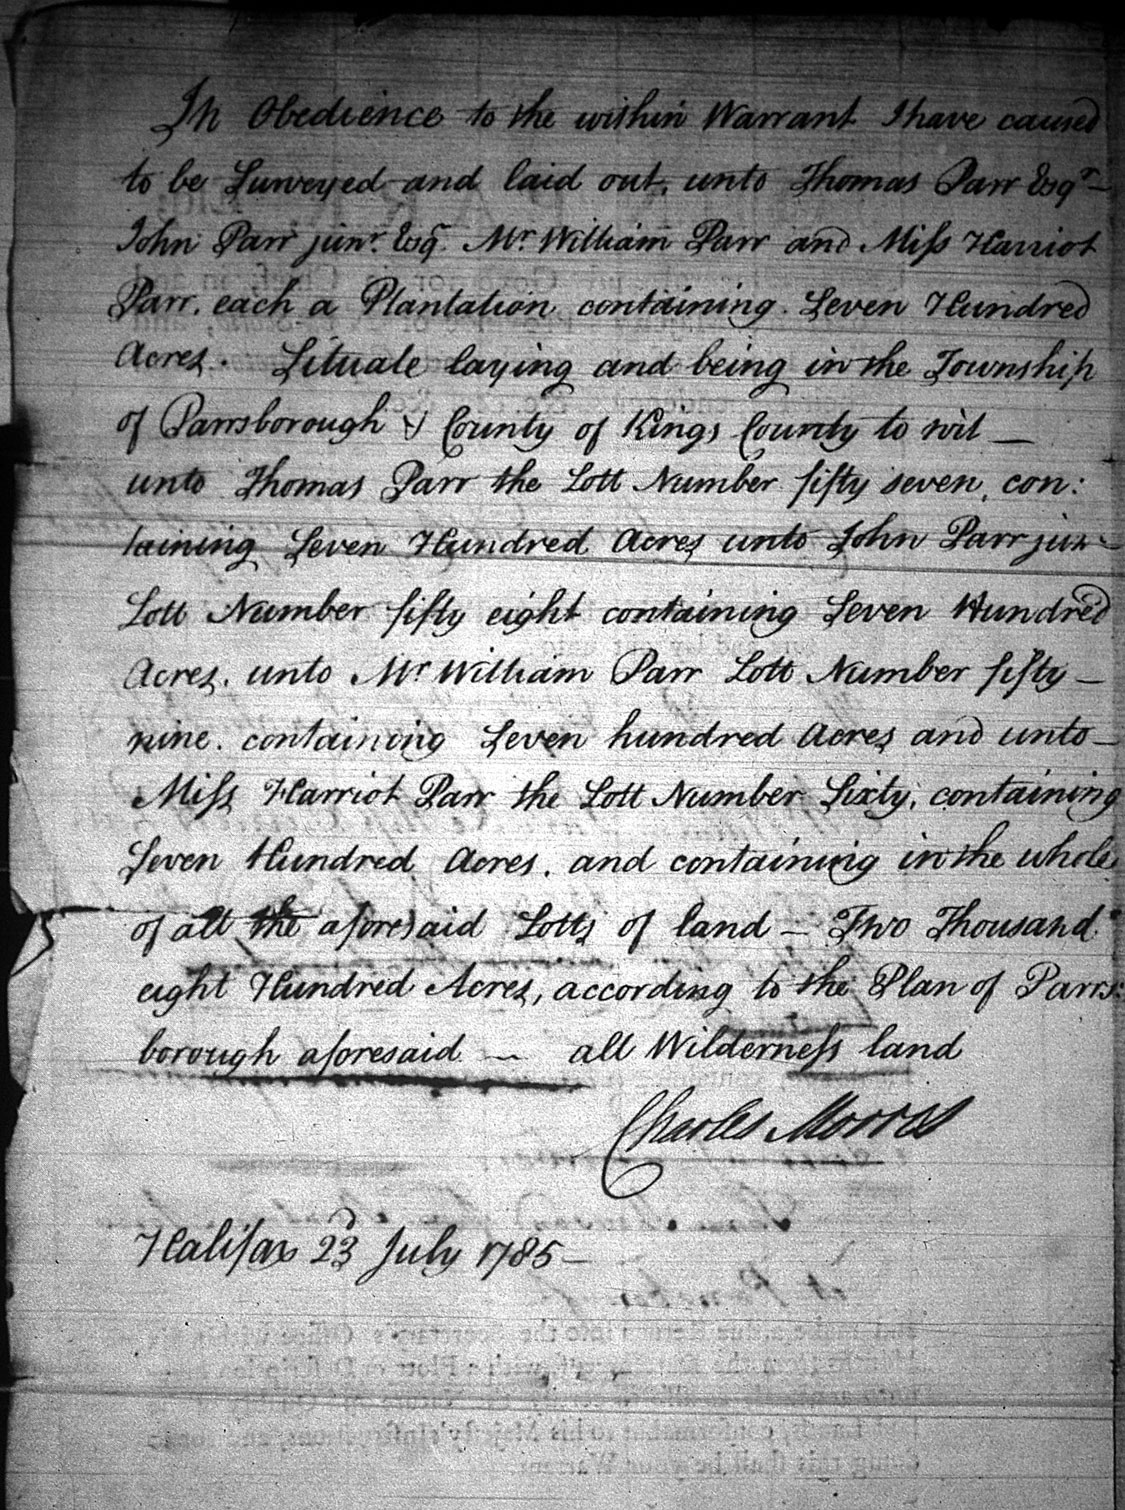 In Obedience to the within Warrant I have caused
to be Surveyed and laid out, unto Thomas Parr Esqr
John Parr junr. Esqr. Mr. William Parr and Miss Harriot
Parr. each a Plantation containing Seven Hundred
Acres. Situate laying and being in the Township
of Parrsborough & County of Kings County to wit —
unto Thomas Parr the Lott Number fifty seven, con:
taining Seven Hundred Acres unto John Parr jun
Lott Number fifty eight containing Seven Hundred
Acres. unto Mr William Parr Lott Number fifty —
nine. containing Seven hundred Acres and unto —
Miss Harriot Parr the Lott Number Sixty, containing
Seven Hundred Acres. and containing in the whole
of all the aforesaid Lotts of land — Two Thousand
eight Hundred Acres, according to the Plan of Parrs:
borough aforesaid — all Wilderness land
Charles Morris
Halifax 23d July 1785 —